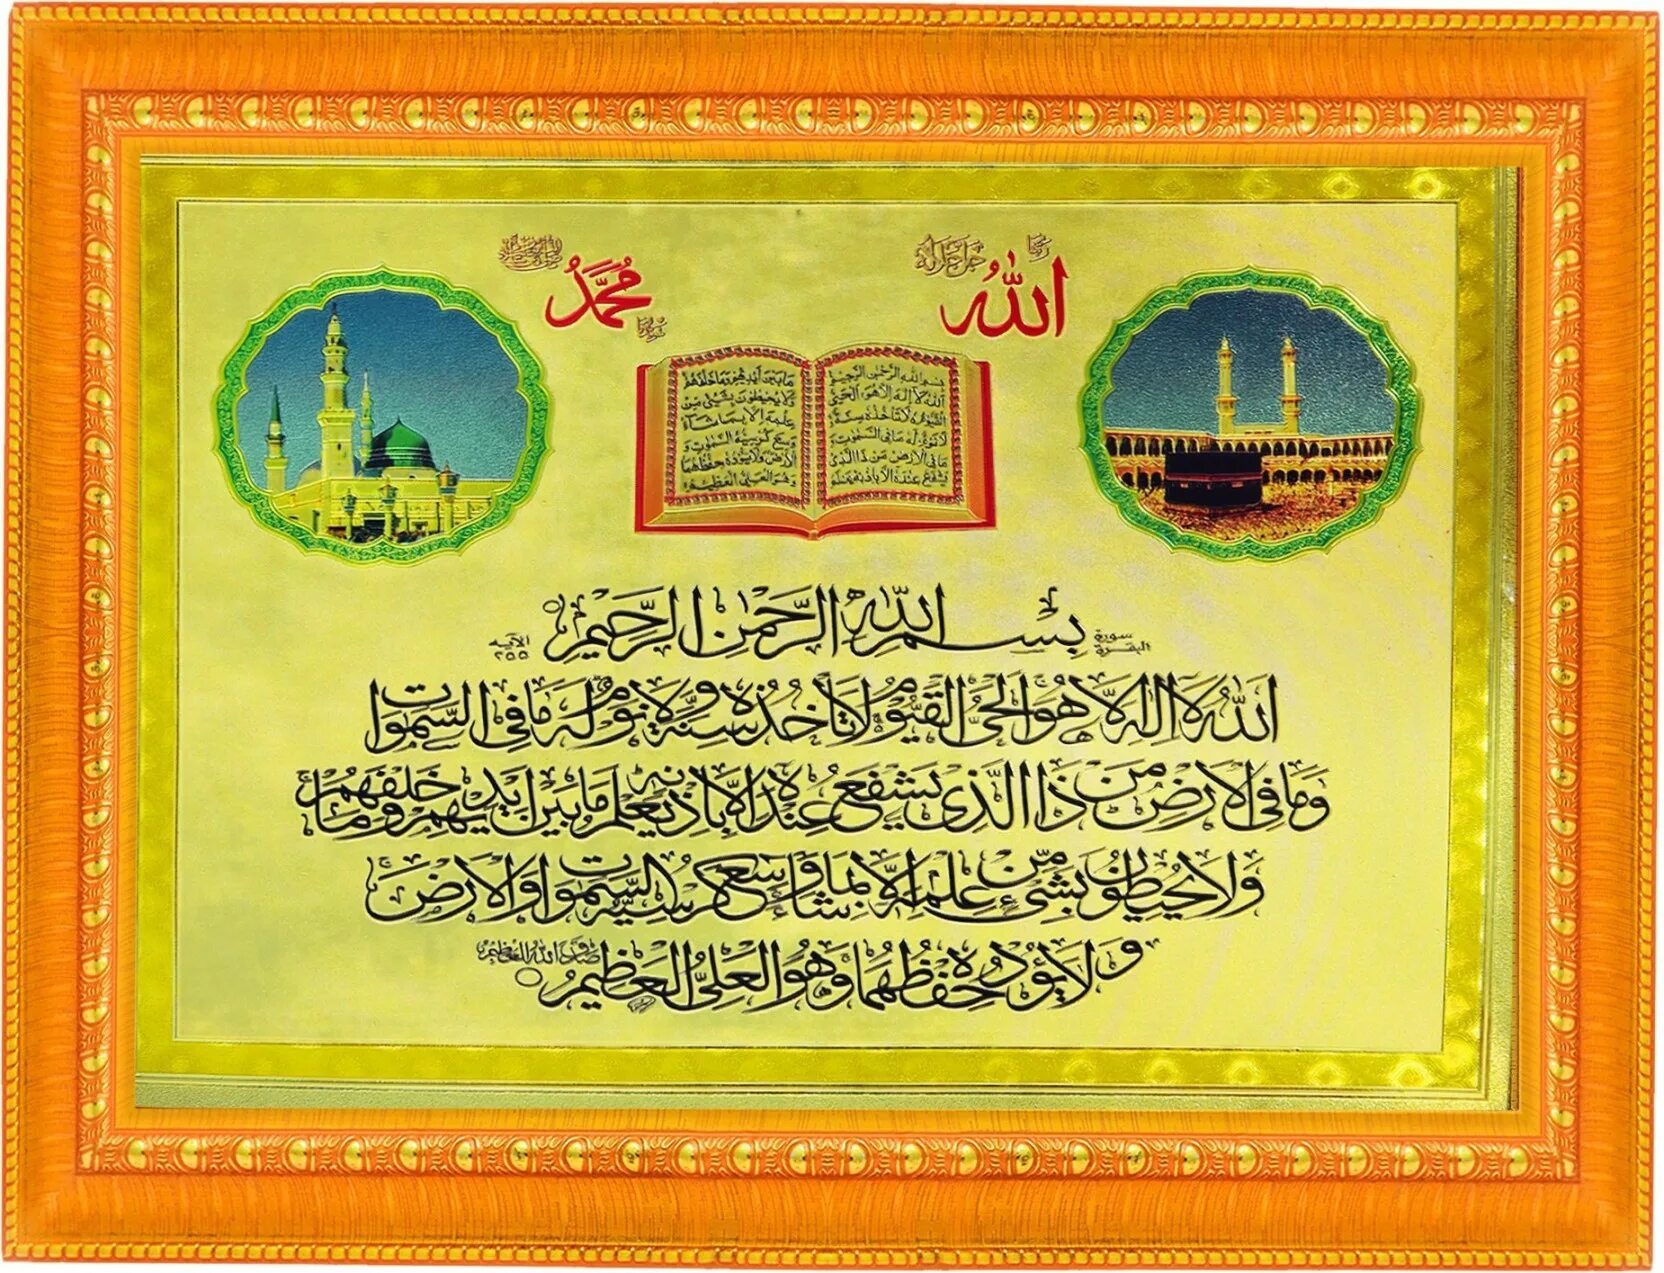 الله
محمد
بسم الله الرحمن الرحيم
الله لا اله الا هو الحي
القيوم لا تاخذه سنة
و لا نوم له ما في السموت و
ما في الارض من ذا الذي
يشفع عنده الا باذنه يعلم
ما بين ايديهم وما خلفهم
ولا يحيطون بشيء من
علمه الا بما شاء
وسع كرسيه السموت و
الارض ولا يؤده حفظهما
وهو العلي العظيم
سورة البقرة
بِسْمِ اللهِ الرَّحْمٰنِ الرَّحِيْمِ
الآية ٢٥٥
اَللهُ لَا اِلٰهَ اِلَّا هُوَ الْحَيُّ الْقَيُّوْمُ لَا تَأْخُذُهُ سِنَةٌ وَّلَا نَوْمٌ لَهُ مَا فِي السَّمٰوَاتِ
وَمَا فِي الْاَرْضِ مَنْ ذَا الَّذِيْ يَشْفَعُ عِنْدَهُ اِلَّا بِاِذْنِهِ يَعْلَمُ مَا بَيْنَ اَيْدِيْهِمْ وَمَا خَلْفَهُمْ
وَلَا يُحِيْطُوْنَ بِشَيْءٍ مِّنْ عِلْمِهِ اِلَّا بِمَا شَاءَ وَسِعَ كُرْسِيُّهُ السَّمٰوَاتِ وَالْاَرْضَ
وَلَا يَؤُدُهُ حِفْظُهُمَا وَهُوَ الْعَلِيُّ الْعَظِيْمُ
صدق الله العظيم